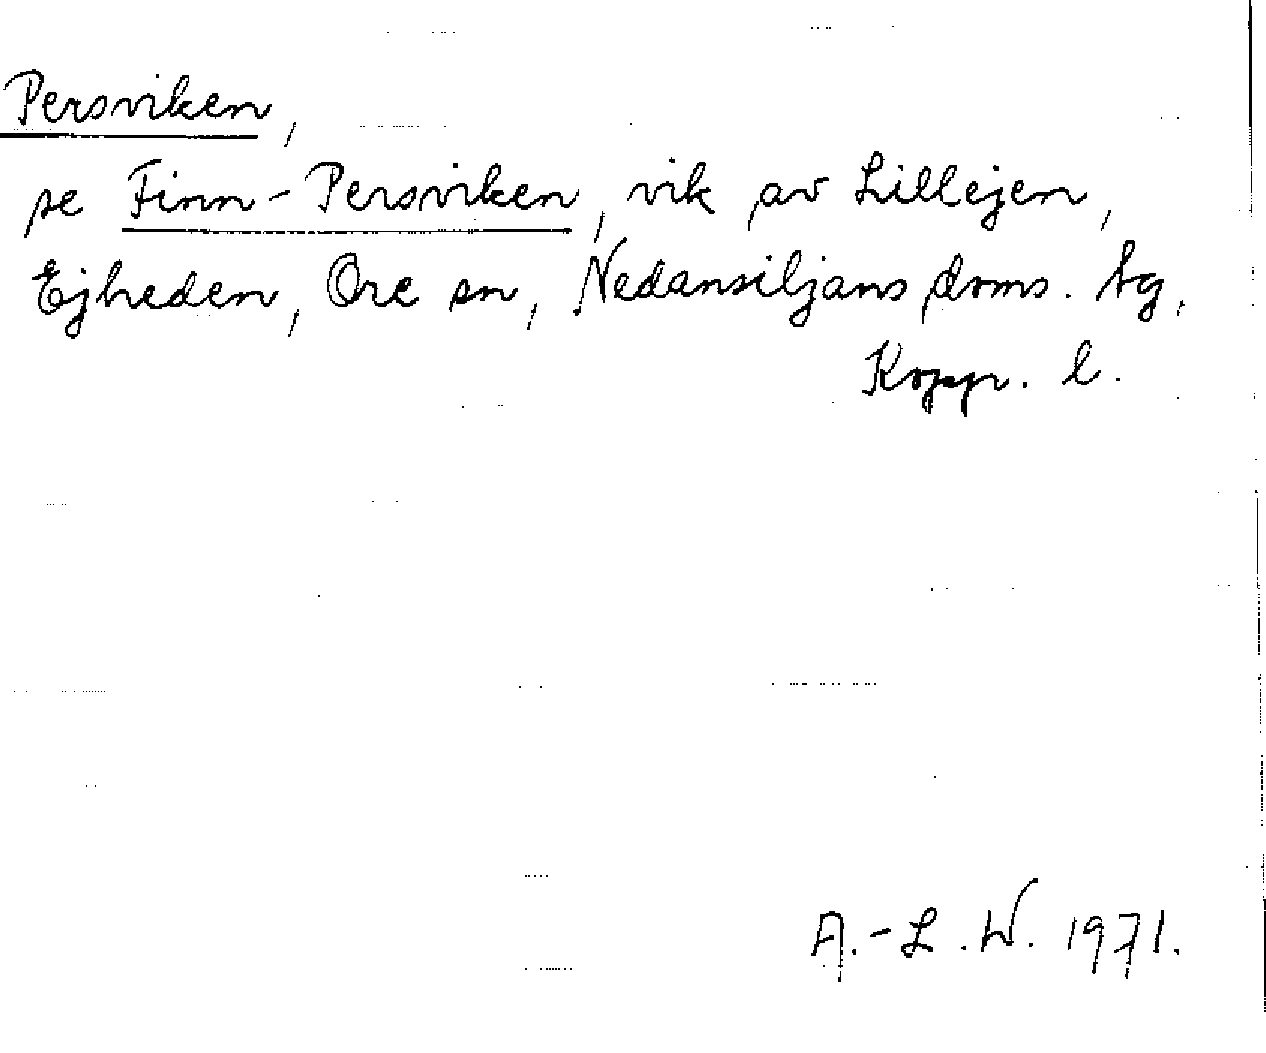 Persviken,
se Finn-Persviken, vik av Lillejen,
Ejheden, Ore sn, Nedansiljans doms. tg,
Kopp. l.
A.-L.W. 1971.